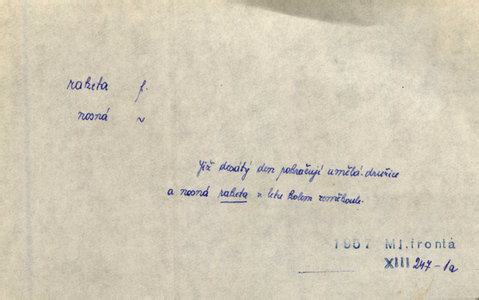 raketa f.
nosná ~
Již desátý den pokračují umělá družice
a nosná raketa v letu kolem zeměkoule.
1957 Ml.fronta
XIII 247-1a